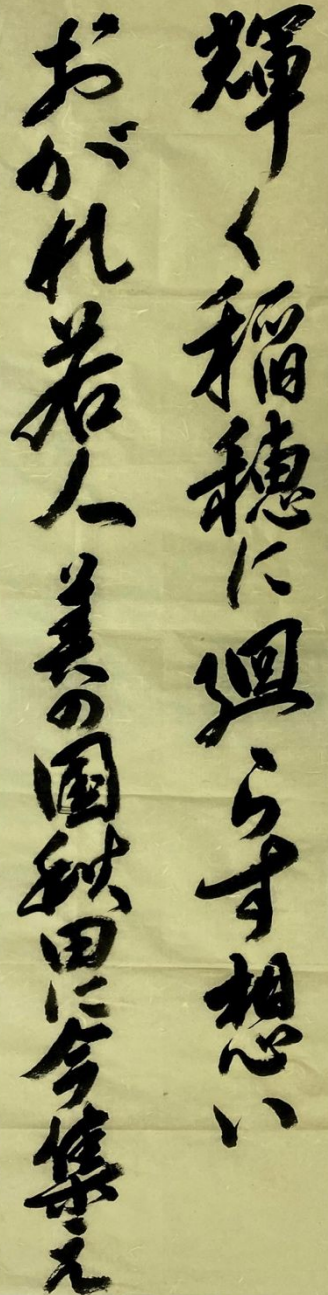 輝く稲穂に廻らす想い
おがれ若人 美の国秋田に今集え